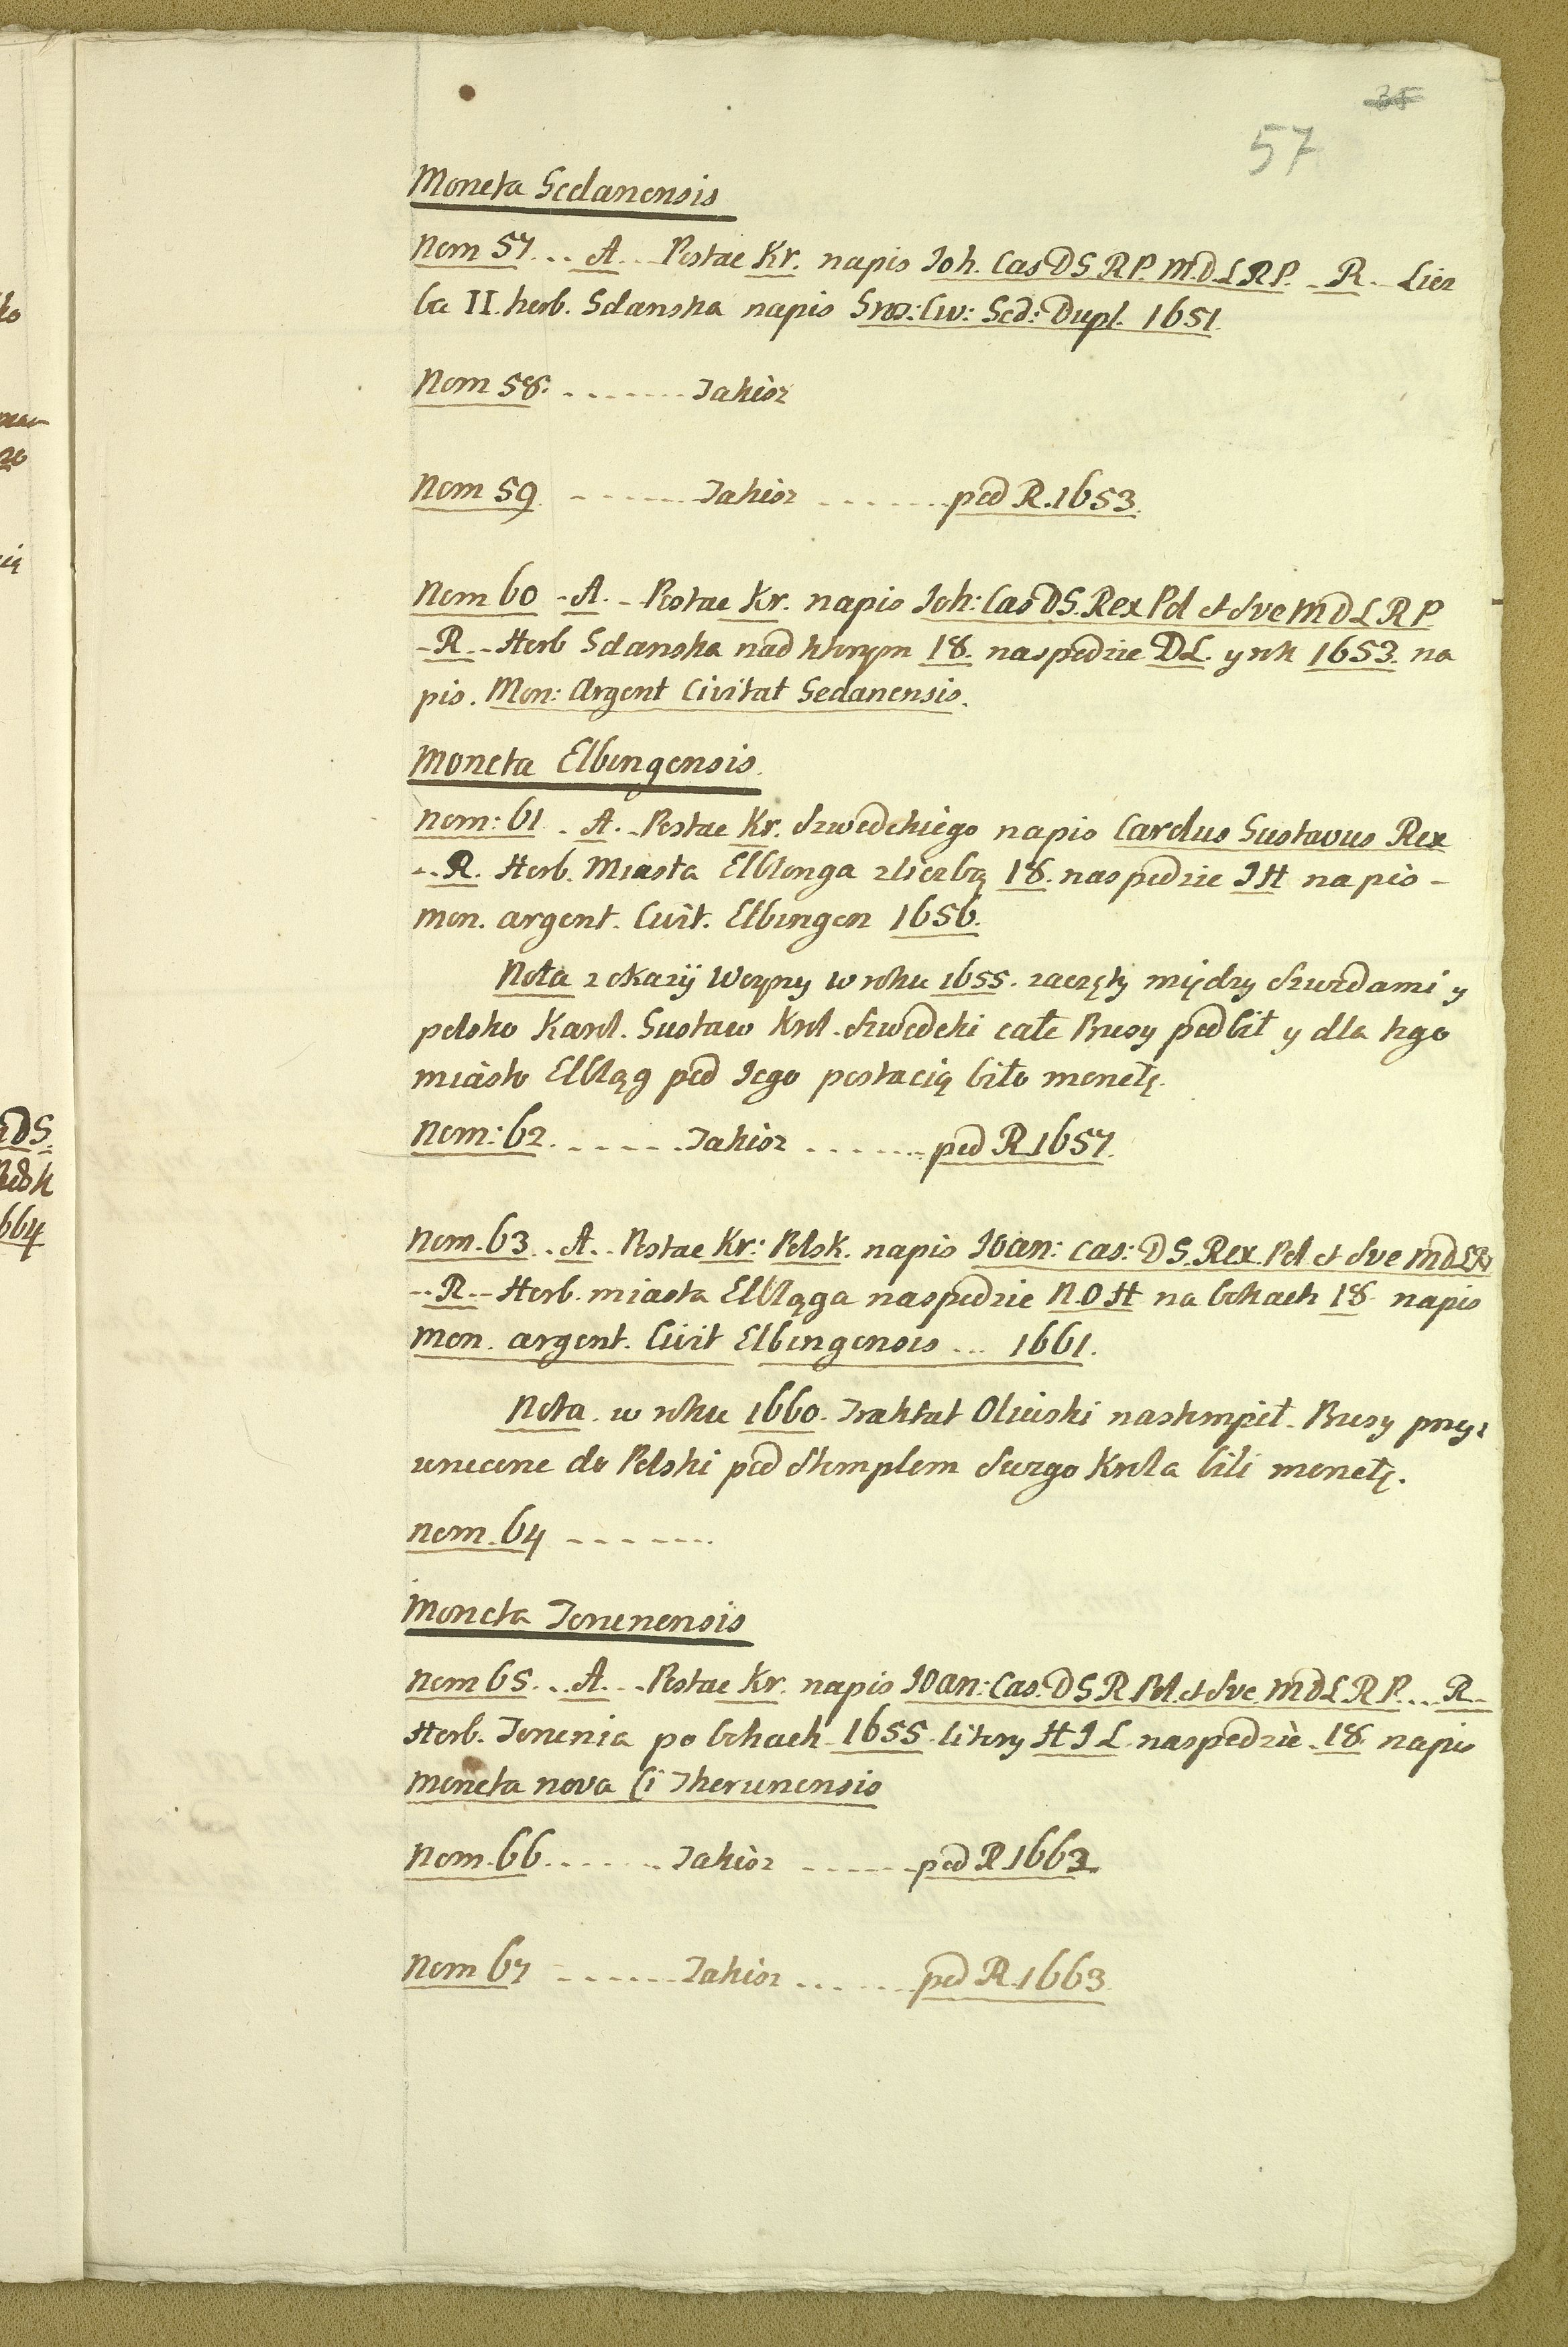 35
57
Moneta Gedanensis
Nom 57... A... Postac Kr. napis Joh. Cas D G R P. M.D.L R P. - R.- Licz
ba II. herb. Gdanska napis Gros: Civ: Ged: Dupl. 1651.
Nom 58. ....... Takioz
Nom 59 ....... Takioz ....... pod R. 1653.
Nom 60 - A. - Postac Kr. napis Joh: Cas D G. Rex Pol et Sve M D L R P
- R. - Herb Gdanska nad ktorym 18. naspodzie DL. y rok 1653. na
pis. Mon: Argent Civitat Gedanensis.
Moneta Elbingensis.
Nom: 61. A. - Postac Kr. Szwedzkiego napis Carolus Gustavus Rex
- R. Herb. Miasta Elblonga z liczbą 18. naspodzie I H napis -
mon. argent. Civit. Elbingen 1656.
Nota z okazÿi Woyny w roku 1655. zaczęty między Szwedami y
polsko Karol. Gustaw Krol. Szwedzki całe Prusy podbił y dla tego
miasto Elbląg pod Jego postacią biło monetę.
Nom: 62. ...... Takioz ....... pod R 1657.
Nom. 63. . A. . Postac Kr: Polsk. napis Joan: Cas: D G. Rex. Pol et Sve M D L R
- R. - Herb. miasta Elbląga naspodzie N. O H na bokach 18 napis
Mon. argent. Civit Elbingensis ... 1661.
Nota. w roku 1660. Traktat Oliwski nastompił. Prusy przy:
wrucone do Polski pod Stemplem Swego Krola bili monetę.
nom. 64 .......
Moneta Torunensis
nom 65. . A. . Postac Kr. napis Joan: Cas: D G R Pol. et Sve. M D L R P. .. R -
Herb. Torunia po bokach 1655. litery H I L. naspodzie 18. napis
moneta nova Ci Thorunensis
Nom. 66. ....... Takioz ....... pod R 1663.
Nom 67 ....... Takioz ....... pod R. 1663.